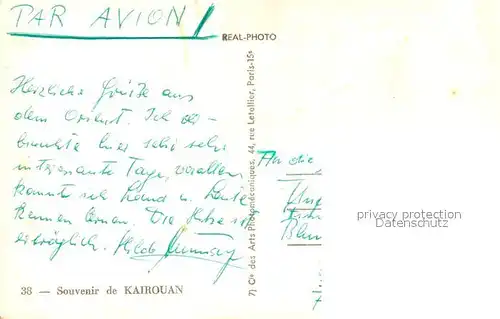 PAR AVION
REAL-PHOTO
Herzliche Grüße aus
dem Orient. Ich ver-
brachte hier sehr sehr
intressante Tage, vorallem
konnte ich Land u. Leute
kennen lernen. Die Hitze ist
erträglich.
38 — Souvenir de KAIROUAN
Cie des Arts Photomécaniques, 44, rue Letellier, Paris-15e
An die
privacy protection
Datenschutz